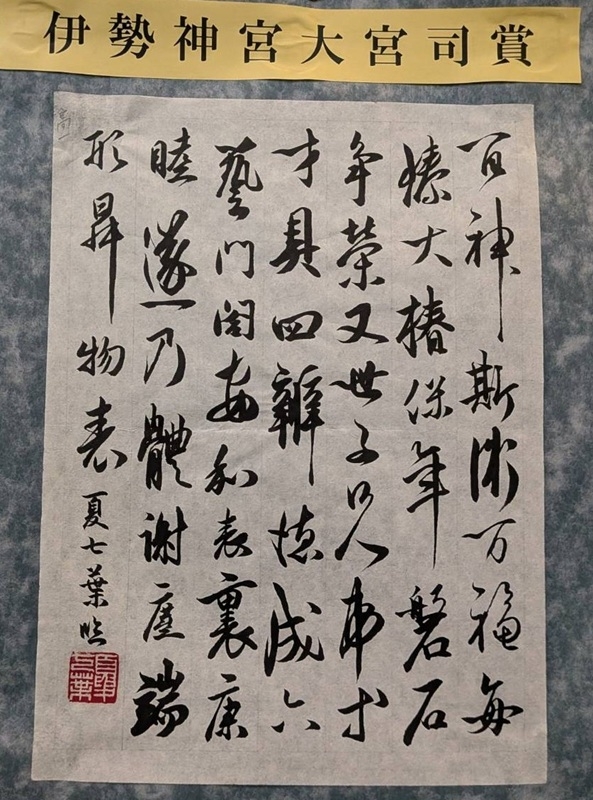 伊勢神宮大宮司賞
百神斯衛万福每
臻大椿保年磐石
争榮又世子
才具四辯德成六
藝門閤安和表裏康
睦遂乃體謝塵端
形昇物表 夏七葉臨